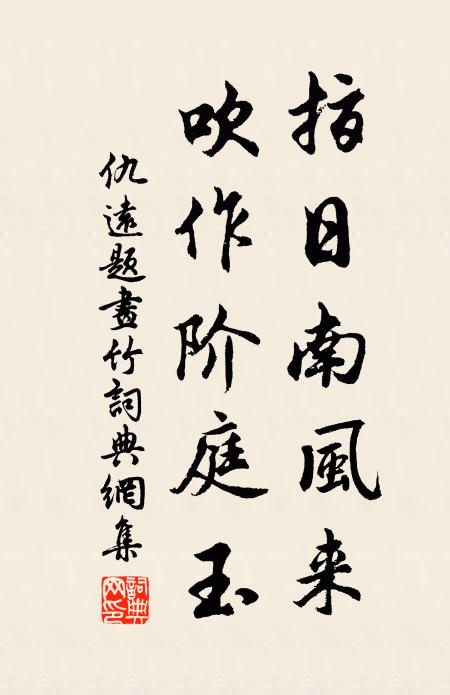 指日南風来
吹作阶庭玉
仇遠題畫竹詞典網集
詞典网印